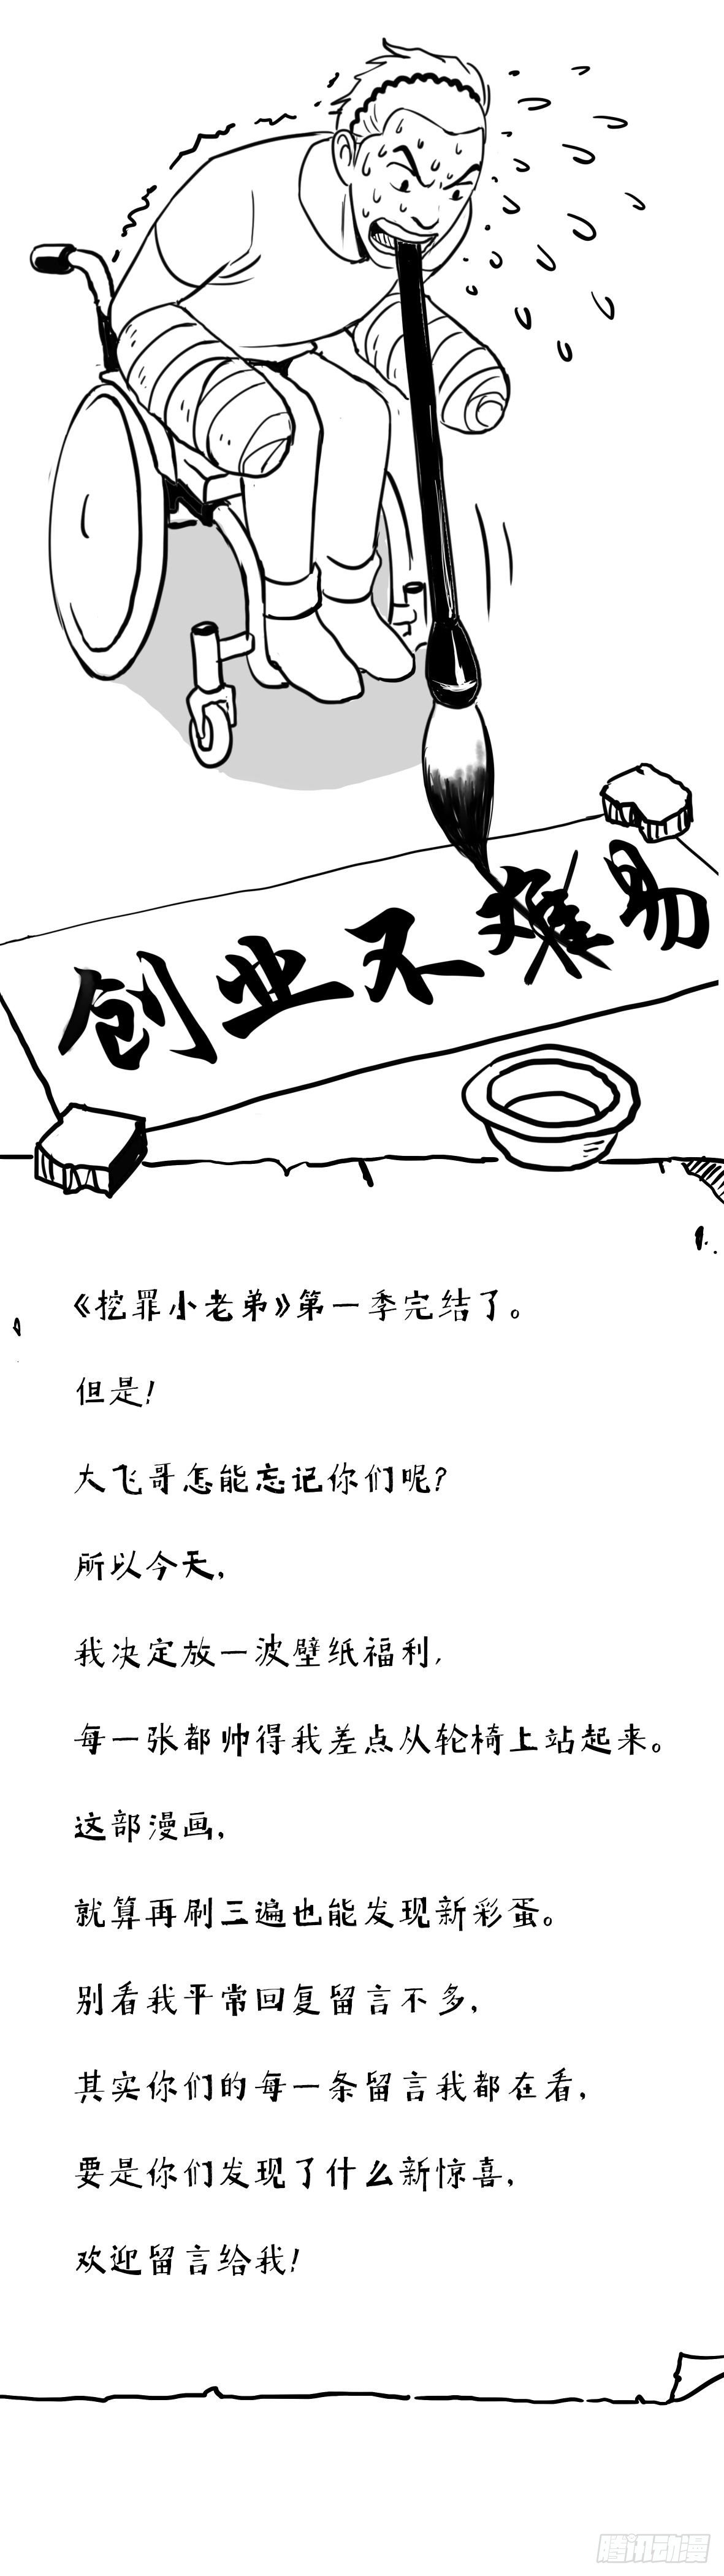 创业不难易
《挖罪小老弟》第一季完结了。
但是！
大飞哥怎能忘记你们呢？
所以今天，
我决定放一波壁纸福利，
每一张都帅得我差点从轮椅上站起来。
这部漫画，
就算再刷三遍也能发现新彩蛋。
别看我平常回复留言不多，
其实你们的每一条留言我都在看，
要是你们发现了什么新惊喜，
欢迎留言给我！
腾讯动漫